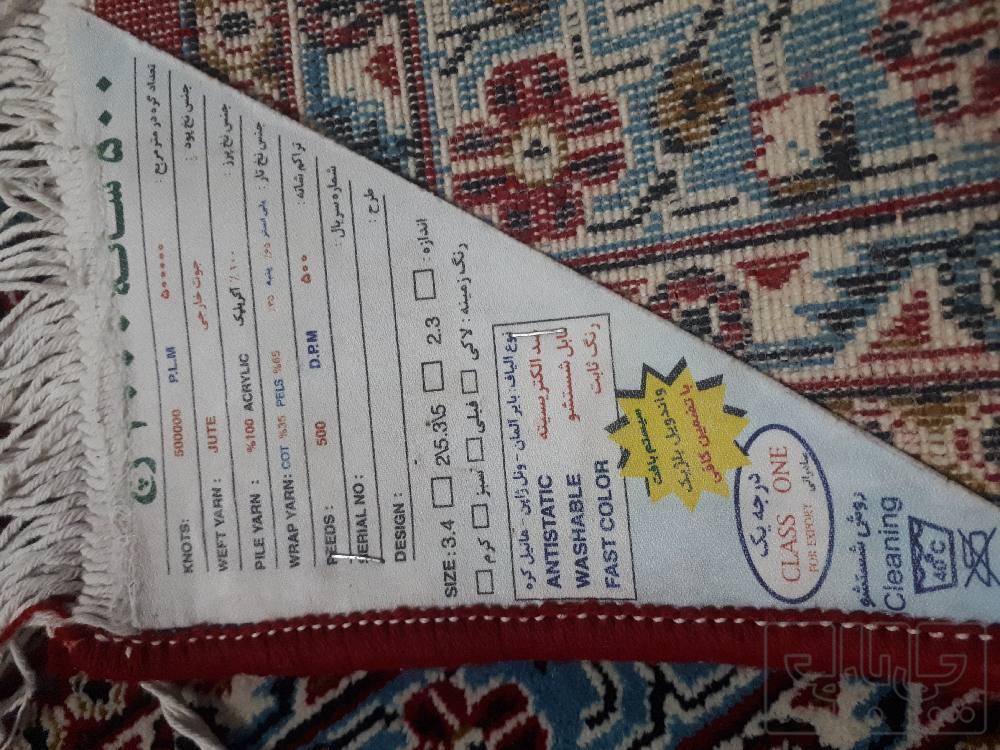 ۵۰۰ شانه
KNOTS: 500000 P.L.M ۵۰۰۰۰۰ تعداد گره در متر مربع :
WEFT YARN : JUTE جوت خارجی جنس نخ پود :
PILE YARN : %100 ACRYLIC ۱۰۰٪ اکریلیک جنس نخ پرز :
WRAP YARN: COT %35 PELS %65 پنبه جنس نخ تار :
REEDS : 500 D.P.M ۵۰۰ تراکم شانه :
SERIAL NO : شماره سریال :
DESIGN : طرح :
SIZE : 3.4 2\5.3\5 2.3 اندازه :
رنگ زمینه : لاکی فیلی سبز کرم
نوع الیاف : بایر المان - ونل ژاپن - هاتیل کره
ANTISTATIC ضد الکتریسیته
WASHABLE قابل شستشو
FAST COLOR رنگ ثابت
سیستم بافت
واندویل بلژیک
با تضمین کافی
درجه یک
CLASS ONE
FOR EXPORT صادراتی
روش شستشو
Cleaning
40°C